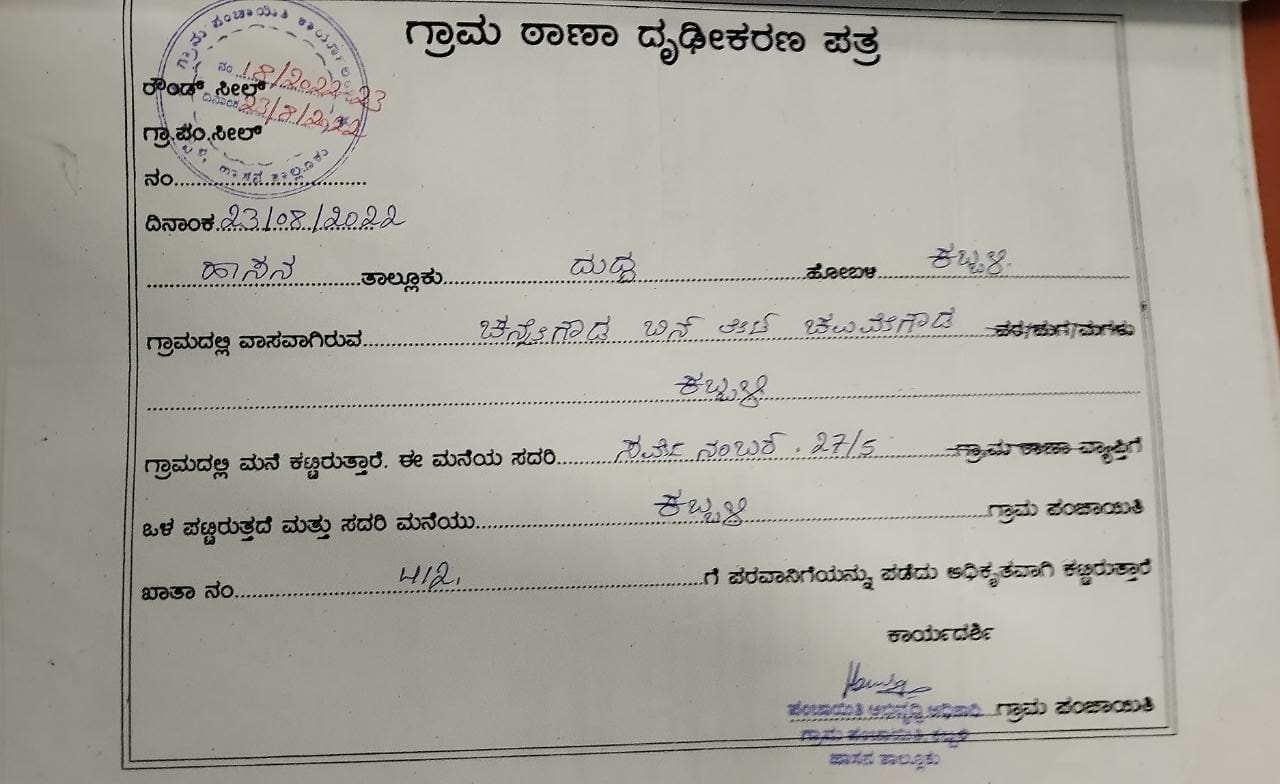 ಗ್ರಾಮ ಠಾಣಾ ದೃಢೀಕರಣ ಪತ್ರ
ಗ್ರಾಮ ಪಂಚಾಯಿತಿ ಕಾರ್ಯಾಲಯ
ನಂ. 18/2022-23
ರೌಂಡ್ ಸೀಲ್
ದಿನಾಂಕ 23/8/2022
ಗ್ರಾ.ಪಂ.ಸೀಲ್
ಹಾಸನ ತಾಲ್ಲೂಕು
ನಂ..............................
ದಿನಾಂಕ 23/08/2022
ಹಾಸನ ತಾಲ್ಲೂಕು ದುದ್ದ ಹೋಬಳಿ ಕಬ್ಬಳಿ.
ಗ್ರಾಮದಲ್ಲಿ ವಾಸವಾಗಿರುವ ಚನ್ನೇಗೌಡ ಬಿನ್ ಲೇಟ್ ಚಲುವೇಗೌಡ
ಕಬ್ಬಳಿ
ಗ್ರಾಮದಲ್ಲಿ ಮನೆ ಕಟ್ಟಿರುತ್ತಾರೆ. ಈ ಮನೆಯ ಸದರಿ ಸರ್ವೆ ನಂಬರ್. 27/5 ಗ್ರಾಮ ಠಾಣಾ ವ್ಯಾಪ್ತಿಗೆ
ಒಳ ಪಟ್ಟಿರುತ್ತದೆ ಮತ್ತು ಸದರಿ ಮನೆಯು ಕಬ್ಬಳಿ ಗ್ರಾಮ ಪಂಚಾಯಿತಿ
ಖಾತಾ ನಂ. 412. ಗೆ ಪರವಾನಿಗೆಯನ್ನು ಪಡೆದು ಅಧಿಕೃತವಾಗಿ ಕಟ್ಟಿರುತ್ತಾರೆ
ಕಾರ್ಯದರ್ಶಿ
ಪಂಚಾಯಿತಿ ಅಭಿವೃದ್ಧಿ ಅಧಿಕಾರಿ ಗ್ರಾಮ ಪಂಚಾಯಿತಿ
ಗ್ರಾಮ ಪಂಚಾಯಿತಿ, ಕಬ್ಬಳಿ
ಹಾಸನ ತಾಲ್ಲೂಕು